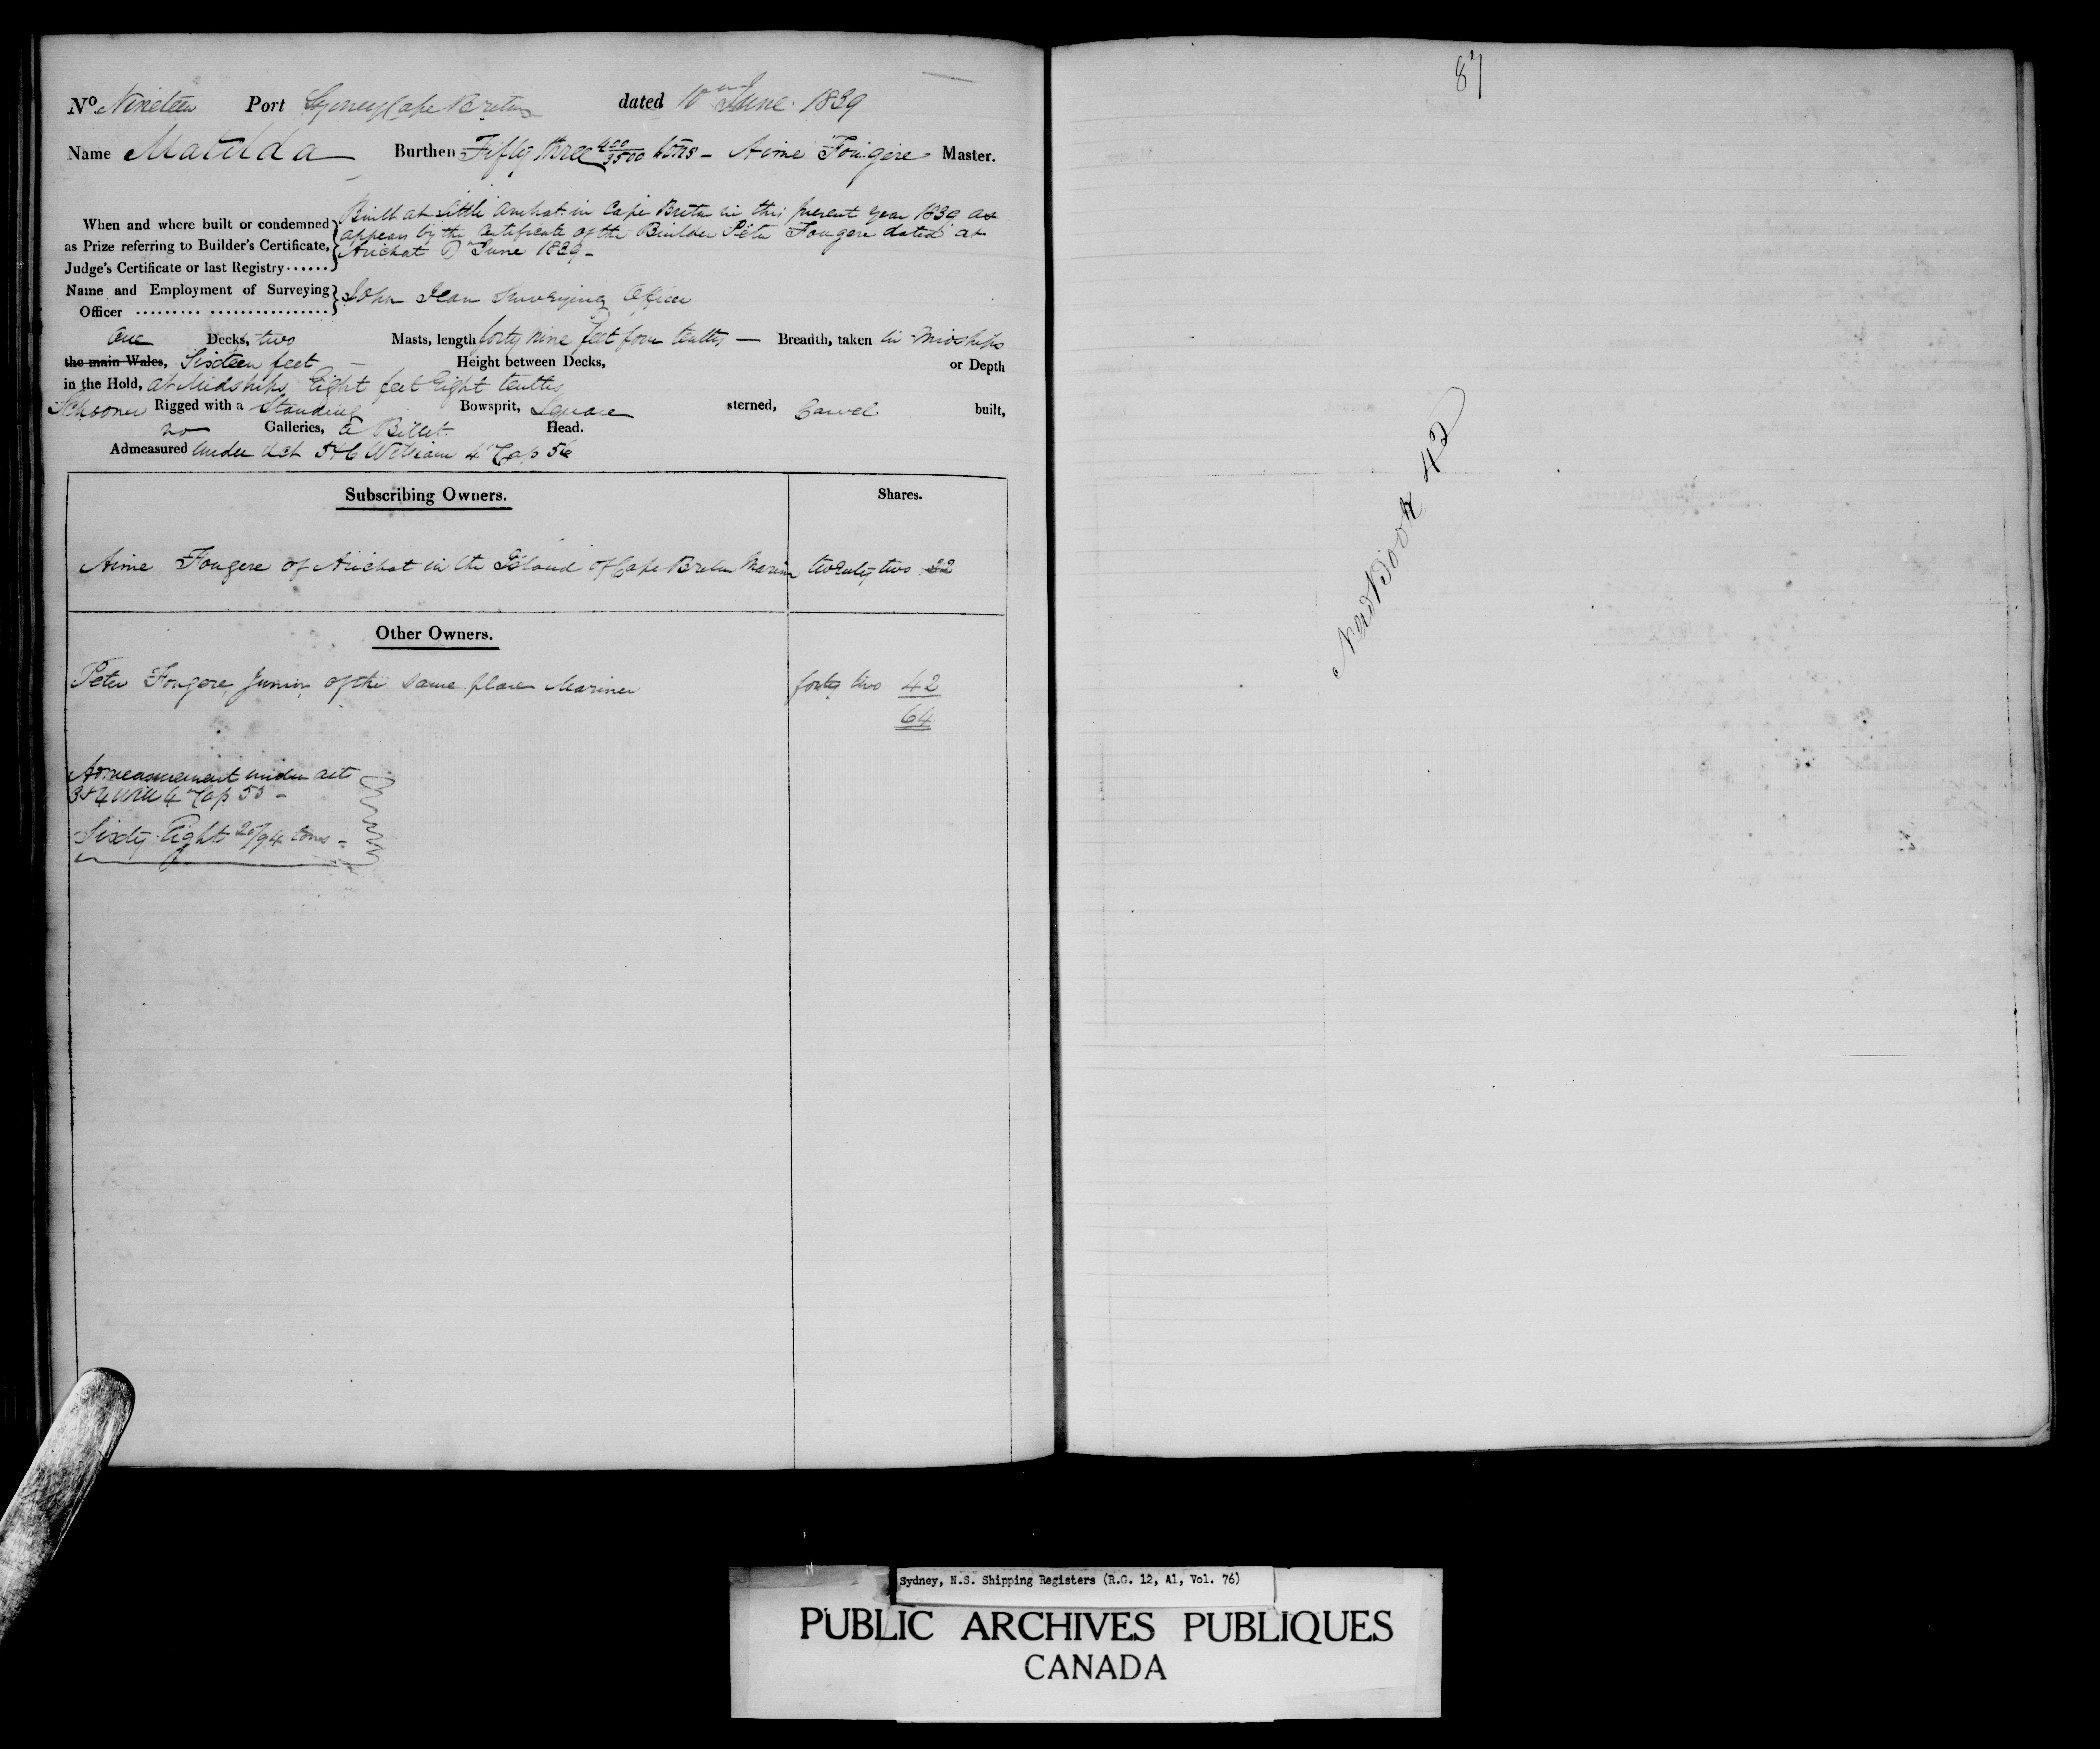 No. Nineteen Port Sydney Cape Breton dated 10th June 1839
Name Matilda Burthen Fifty three 400/3500 tons - Aime Fougere Master.
When and where built or condemned as Prize referring to Builder's Certificate, Judge's Certificate or last Registry......
Built at Little Arichat in Cape Breton in this present year 1839 as
appears by the Certificate of the Builder Peter Fougere dated at
Arichat June 1839 -
Name and Employment of Surveying Officer ......... ................ John Jean Surveying Officer
One Decks, two Masts, length forty nine feet four tenths — Breadth, taken in Midships
the main Wales, Sixteen feet — Height between Decks, or Depth
in the Hold, at Midships Eight feet Eight tenths
Schooner Rigged with a Standing Bowsprit, Square sterned, Carvel built,
no Galleries, a Billet Head.
Admeasured under Act 5 & 6 William 4th Cap 56
Subscribing Owners. Shares.
Aime Fougere of Arichat in the Island of Cape Breton Mariner twenty two 22
Other Owners.
Peter Fougere Junior of the same place Mariner forty two 42
64
Admeasurement under act
3 & 4 Will 4th Cap 55 -
Sixty Eight 20/94 tons -
87
New Book 42
Sydney, N.S. Shipping Registers (R.G. 12, A1, Vol. 76)
PUBLIC ARCHIVES PUBLIQUES
CANADA